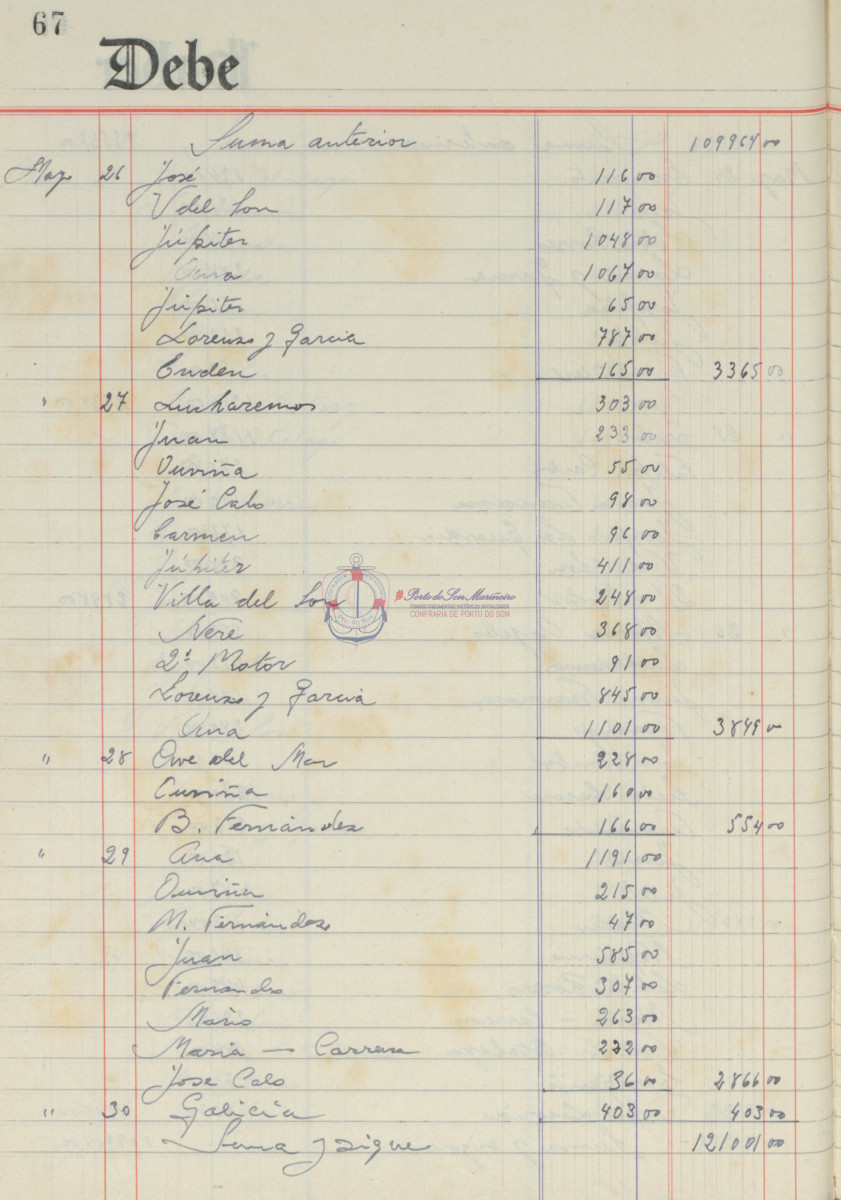 67
Debe
Suma anterior 109964 00
Mayo 26 José 116 00
V del Son 117 00
Júpiter 1048 00
Ana 1067 00
Júpiter 65 00
Lorenzo y Garcia 787 00
165 00 3365 00
" 27 Lucharemos 303 00
Juan 233 00
Ouviña 55 00
José Calo 98 00
Carmen 96 00
Júpiter 411 00
Villa del Son 248 00
Nere 368 00
2º Motor 91 00
Lorenzo y Garcia 845 00
Ana 1101 00 3849 00
" 28 Ave del Mar 228 00
Ouviña 160 00
B. Fernández 166 00 554 00
" 29 Ana 1191 00
Ouviña 215 00
M. Fernández 47 00
Juan 585 00
Fernando 307 00
Mario 263 00
Maria — 222 00
Jose Calo 36 00 2866 00
" 30 Galicia 403 00 403 00
Suma y sigue 121001 00
#Porto do Son Mariñeiro
CONFRARIA DE PORTO DO SON